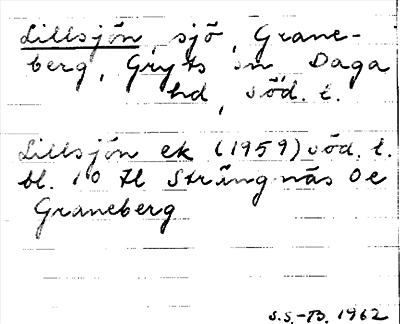 Lillsjön, sjö, Grane-
berg, Gryts sn Daga
hd, Söd. l.
Lillsjön ek (1959) Söd. l.
bl. 10 H Strängnäs Oe
Graneberg
S.S.-B. 1962